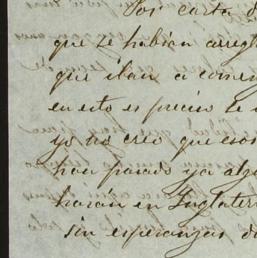 Por carta
que se habian arregl
que iban a comen
en esto es preciso
yo no creo que esos
han pasado ya alg
harán en Inglater
sin esperanzas d